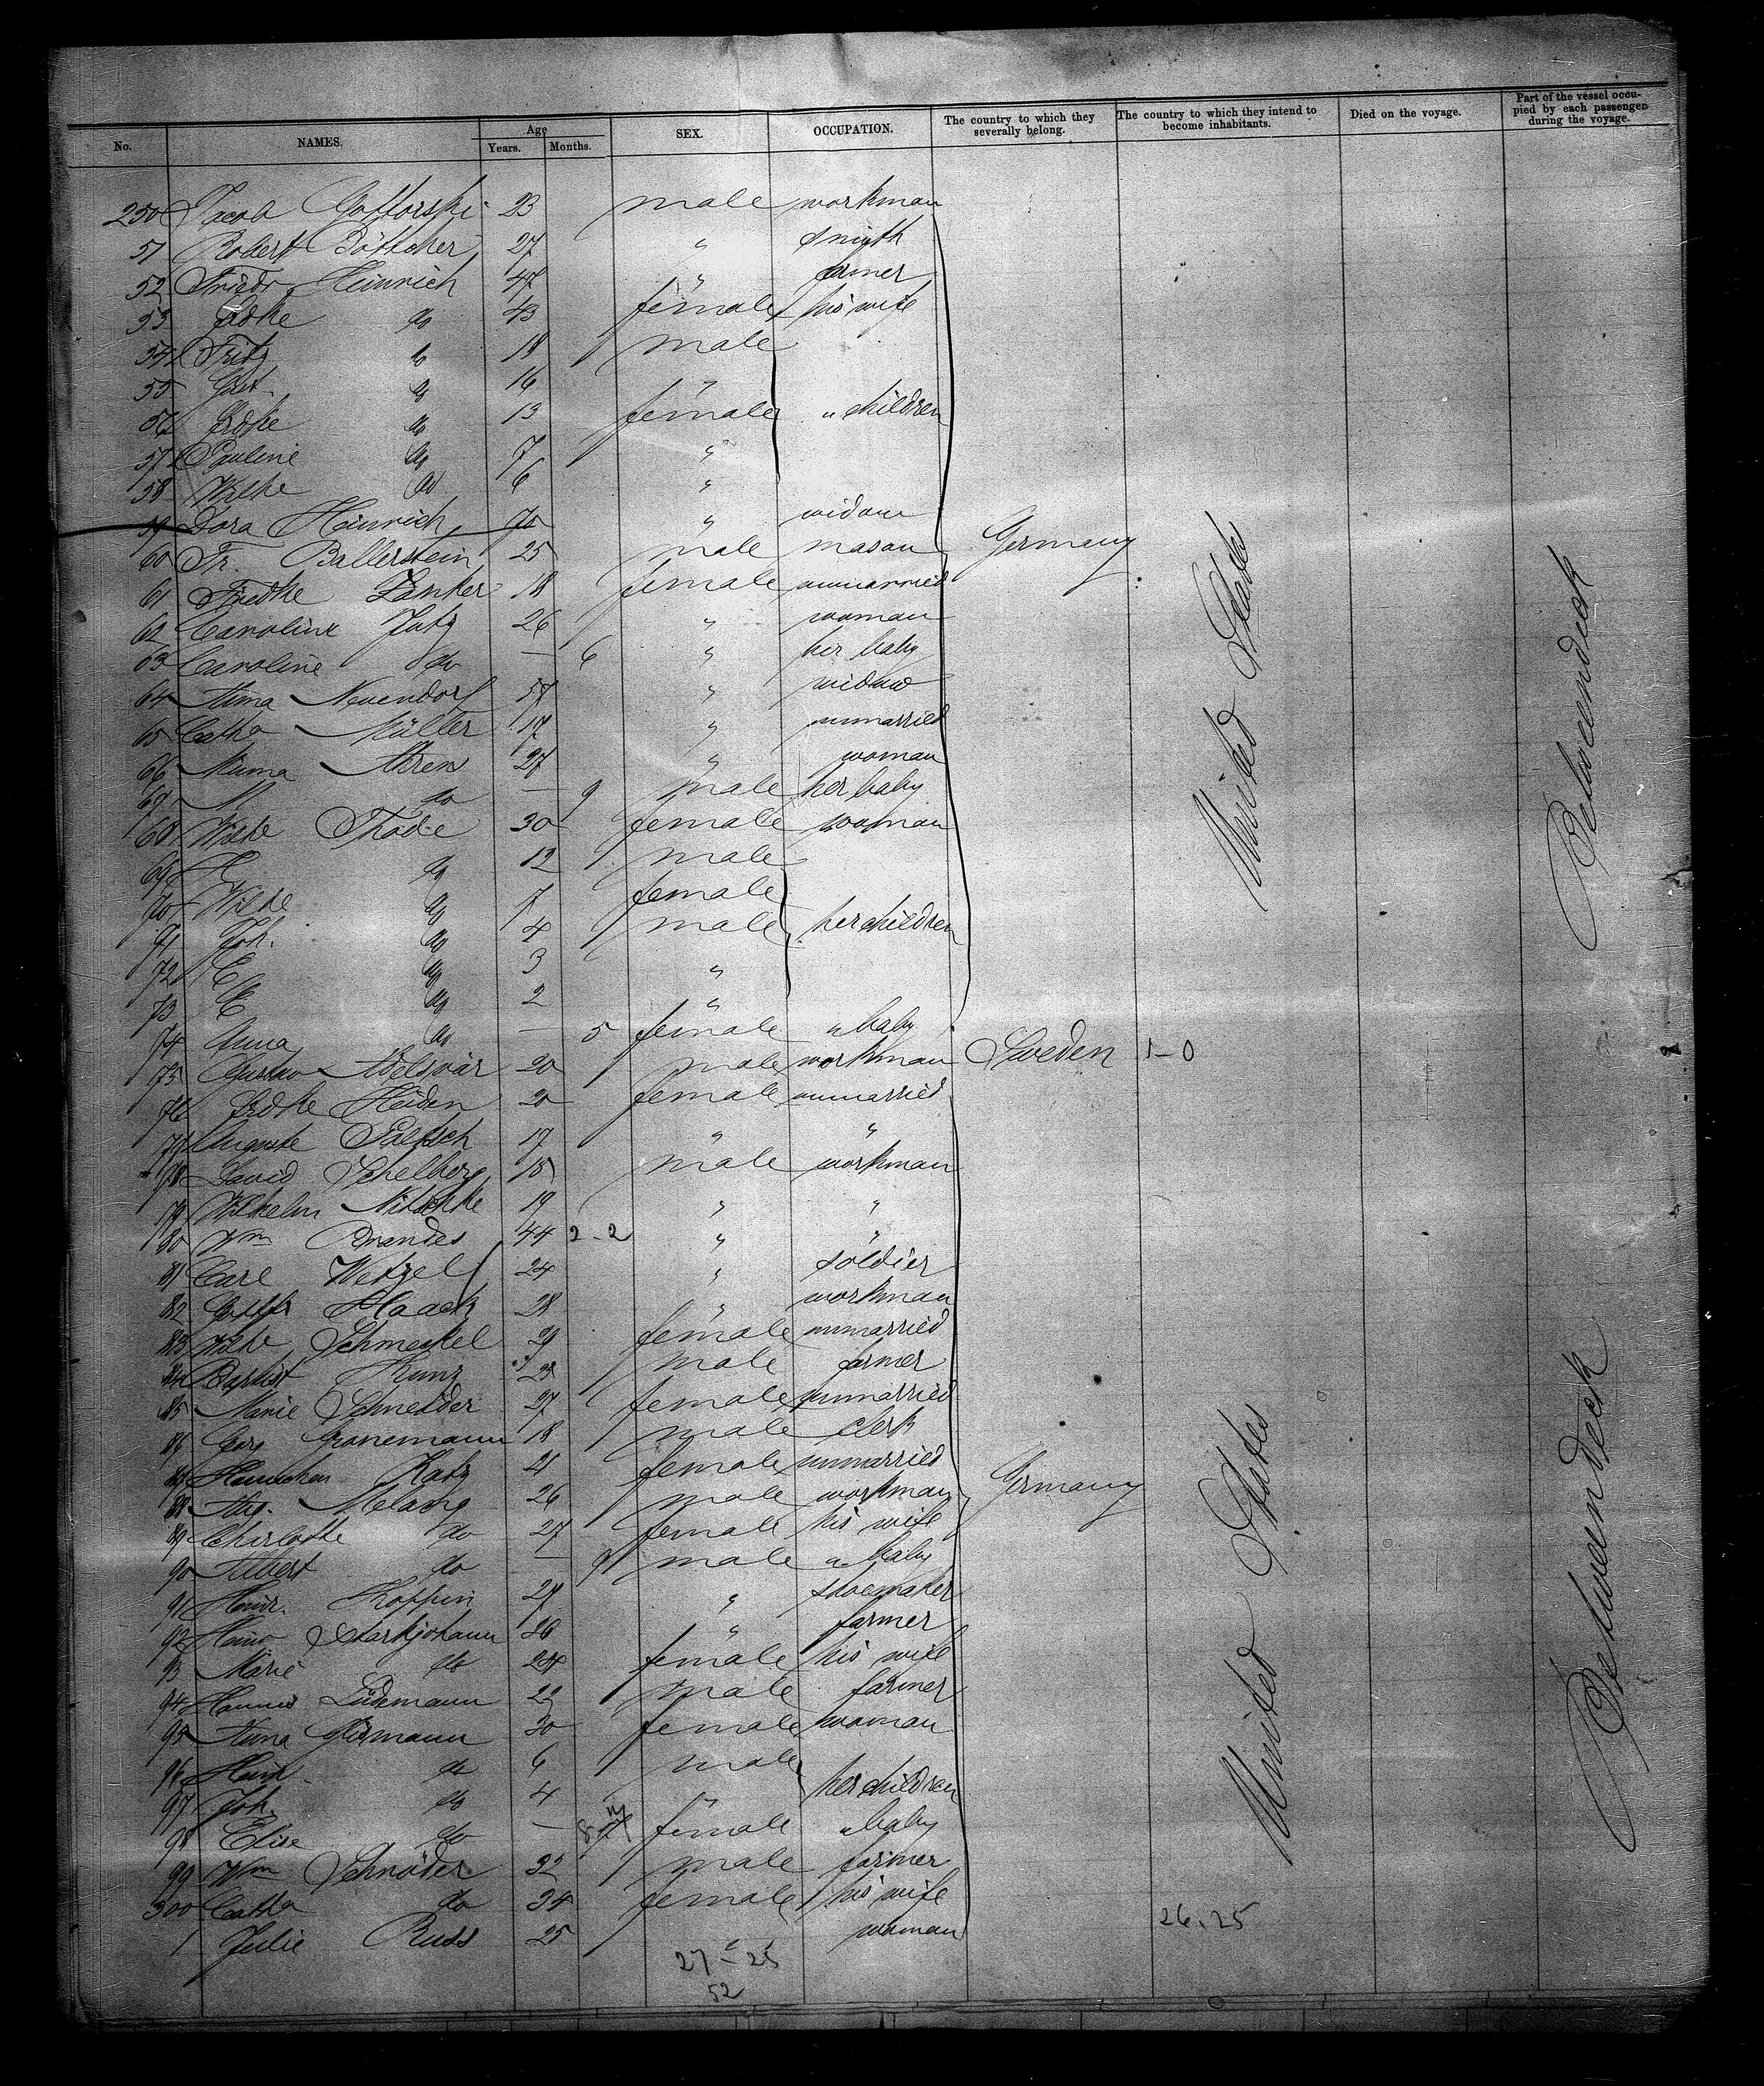 No. NAMES. Age Years. Months. SEX. OCCUPATION. The country to which they severally belong. The country to which they intend to become inhabitants. Died on the voyage. Part of the vessel occupied by each passenger during the voyage.
250 Jacob 23 male workman
51 Robert Böttcher 27 " smith
52 Friedr. Heinrich 47 " farmer
53 Frdke do 43 female his wife
54 Fritz do 18 male
55 do 16 "
56 Frdke do 13 female " children
57 Pauline do 7 "
58 Wilke do 6 "
59 Dora Heinrich 70 " widow
60 Fr. Ballerstein 25 male mason Germany
61 Friedke 18 female unmarried
62 Caroline Jutz 26 " woman
63 Caroline do — 6 " her baby
64 Anna Neuendorf 57 " widow
65 Catha Müller 17 " unmarried
66 Ahren 27 " woman
67 M do — 9 male her baby
68 Thode 30 female woman
69 H do 12 male
70 do 7 female
71 Joh. do 4 male her children
72 C do 3 "
73 E do 2 "
74 Anna do — 5 female " baby
75 Gustav 20 male workman Sweden 1-0
76 Frdke Heiden 20 female unmarried
77 Auguste 17 " "
78 David Schelberg 18 male workman
79 Wilhelm Nitschke 19 " "
80 Wm Brandes 44 2-2 " "
81 Carl Wetzel 24 " soldier
82 Haack 28 " workman
83 Schmeckel 29 female unmarried
84 Baptist Kunz 23 male farmer
85 Marie Schneider 27 female unmarried
86 Georg Gronemann 18 male clerk
87 Katz 21 female unmarried
88 Aug. Melang 26 male workman Germany
89 Charlotte do 27 female his wife
90 Albert do — 9 male " baby
91 Heinr. Koppin 27 " shoemaker
92 Heinr Starkjohann 26 " farmer
93 Marie do 24 female his wife
94 Lüdemann 23 male farmer
95 Anna 30 female woman
96 Hein. do 6 male
97 Joh. do 4 " her children
98 Elise do — female " baby
99 Wm Schröder 32 male farmer
300 Catha do 34 female his wife
1 Julie Russ 25 " woman
United States
Betweendeck
United States
Betweendeck
26.25
27-25
52